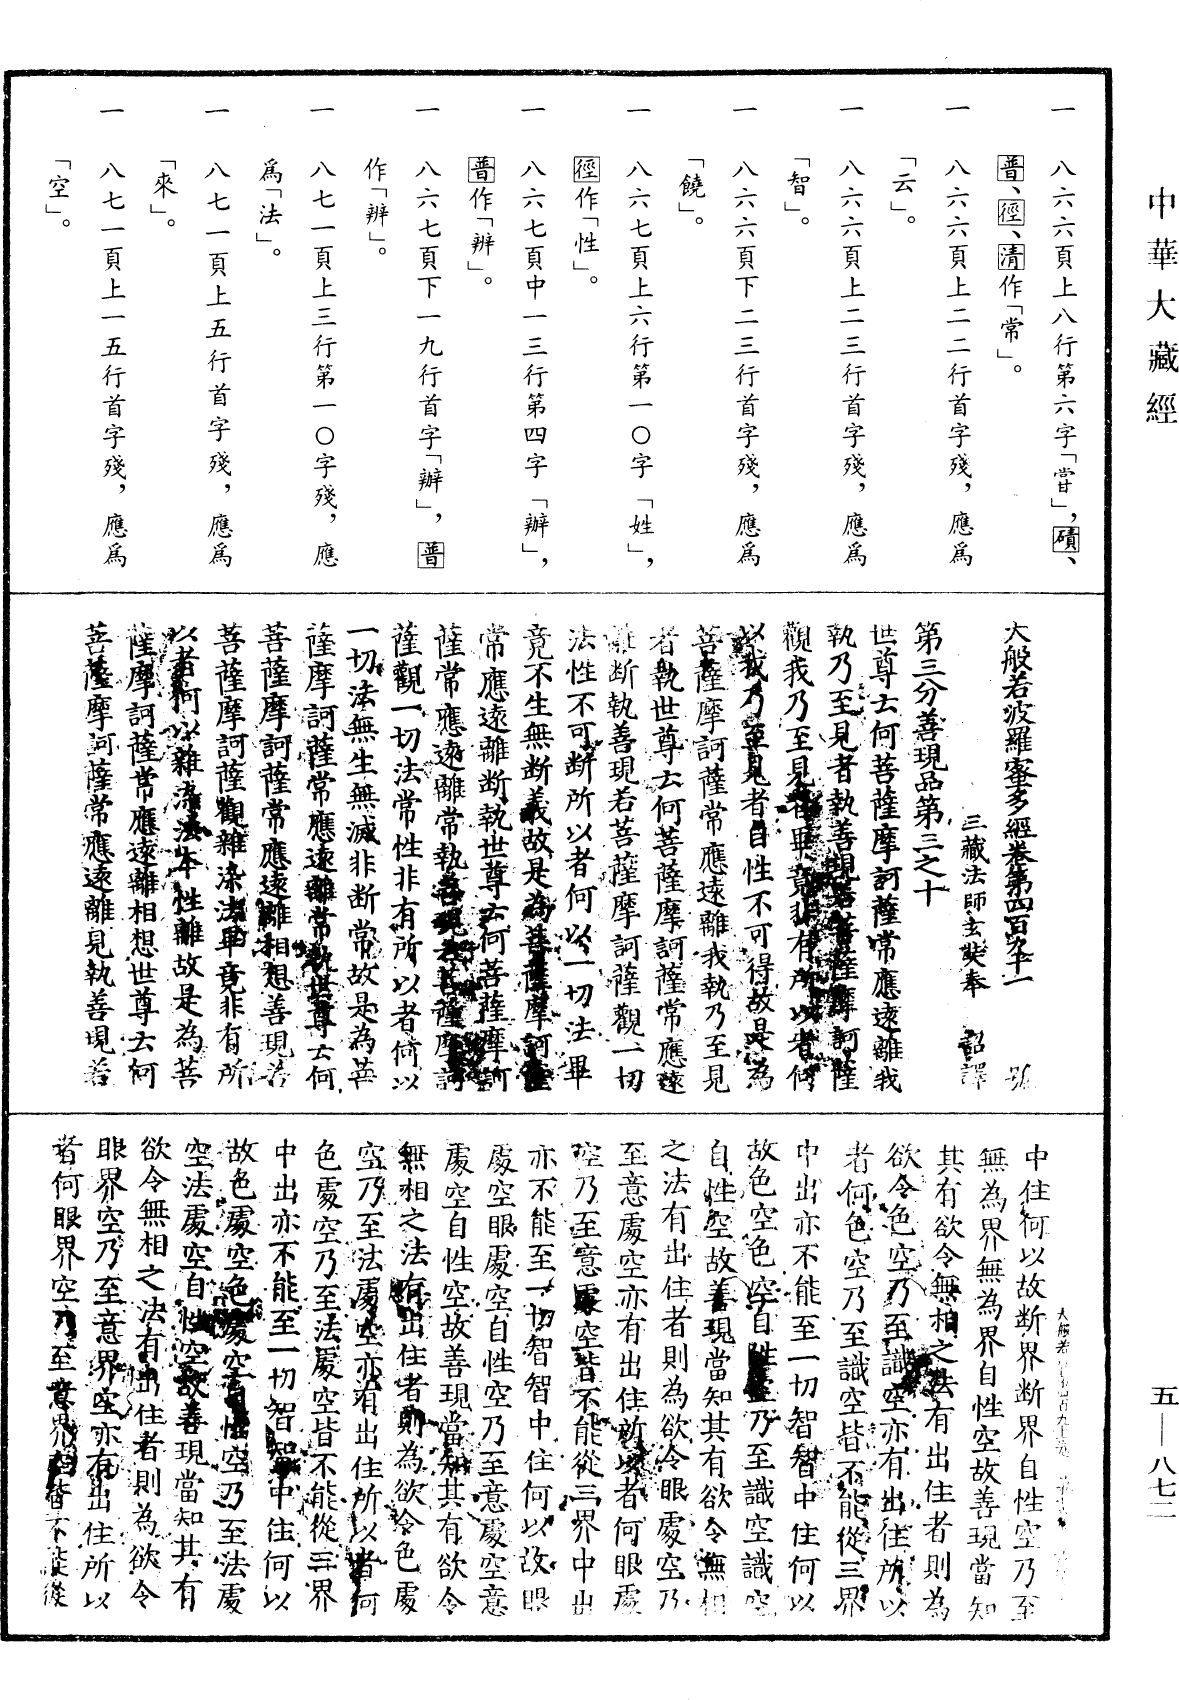 中華大藏經
一　八六六頁上八行第六字「甞」，磧、
普、徑、清作「常」。
一　八六六頁上二二行首字殘，應爲
「云」。
一　八六六頁上二三行首字殘，應爲
「智」。
一　八六六頁下二三行首字殘，應爲
「饒」。
一　八六七頁上六行第一〇字「姓」，
徑作「性」。
一　八六七頁中一三行第四字「辦」，
普作「辨」。
一　八六七頁下一九行首字「辦」，普
作「辨」。
一　八七一頁上三行第一〇字殘，應
爲「法」。
一　八七一頁上五行首字殘，應爲
「來」。
一　八七一頁上一五行首字殘，應爲
「空」。
大般若波羅蜜多經卷第四百九十一　號
三藏法師玄奘奉　詔譯
第三分善現品第三之十
世尊云何菩薩摩訶薩常應遠離我
執乃至見者執善現若菩薩摩訶薩
觀我乃至見者畢竟非有所以者何
以我乃至見者自性不可得故是為
菩薩摩訶薩常應遠離我執乃至見
者執世尊云何菩薩摩訶薩常應遠
離斷執善現若菩薩摩訶薩觀一切
法性不可斷所以者何以一切法畢
竟不生無斷義故是為菩薩摩訶薩
常應遠離斷執世尊云何菩薩摩訶
薩常應遠離常執善現若菩薩摩訶
薩觀一切法常性非有所以者何以
一切法無生無滅非斷常故是為菩
薩摩訶薩常應遠離常執世尊云何
菩薩摩訶薩常應遠離相想善現若
菩薩摩訶薩觀雜染法畢竟非有所
以者何以雜染法本性離故是為菩
薩摩訶薩常應遠離相想世尊云何
菩薩摩訶薩常應遠離見執善現若
中住何以故斷界斷界自性空乃至
無為界無為界自性空故善現當知
其有欲令無相之法有出住者則為
欲令色空乃至識空亦有出住所以
者何色空乃至識空皆不能從三界
中出亦不能至一切智智中住何以
故色空色空自性空乃至識空識空
自性空故善現當知其有欲令無相
之法有出住者則為欲令眼處空乃
至意處空亦有出住所以者何眼處
空乃至意處空皆不能從三界中出
亦不能至一切智智中住何以故眼
處空眼處空自性空乃至意處空意
處空自性空故善現當知其有欲令
無相之法有出住者則為欲令色處
空乃至法處空亦有出住所以者何
色處空乃至法處空皆不能從三界
中出亦不能至一切智智中住何以
故色處空色處空自性空乃至法處
空法處空自性空故善現當知其有
欲令無相之法有出住者則為欲令
眼界空乃至意界空亦有出住所以
者何眼界空乃至意界空皆不能從
五—八七二